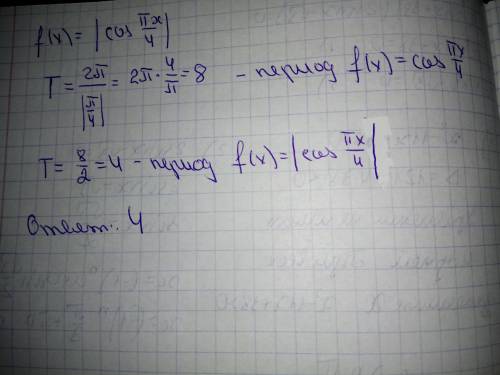 f(x) = |cos πx/4|
T = 2π/|π/4| = 2π · 4/π = 8 - период f(x) = cos πx/4
T = 8/2 = 4 - период f(x) = |cos πx/4|
Ответ: 4